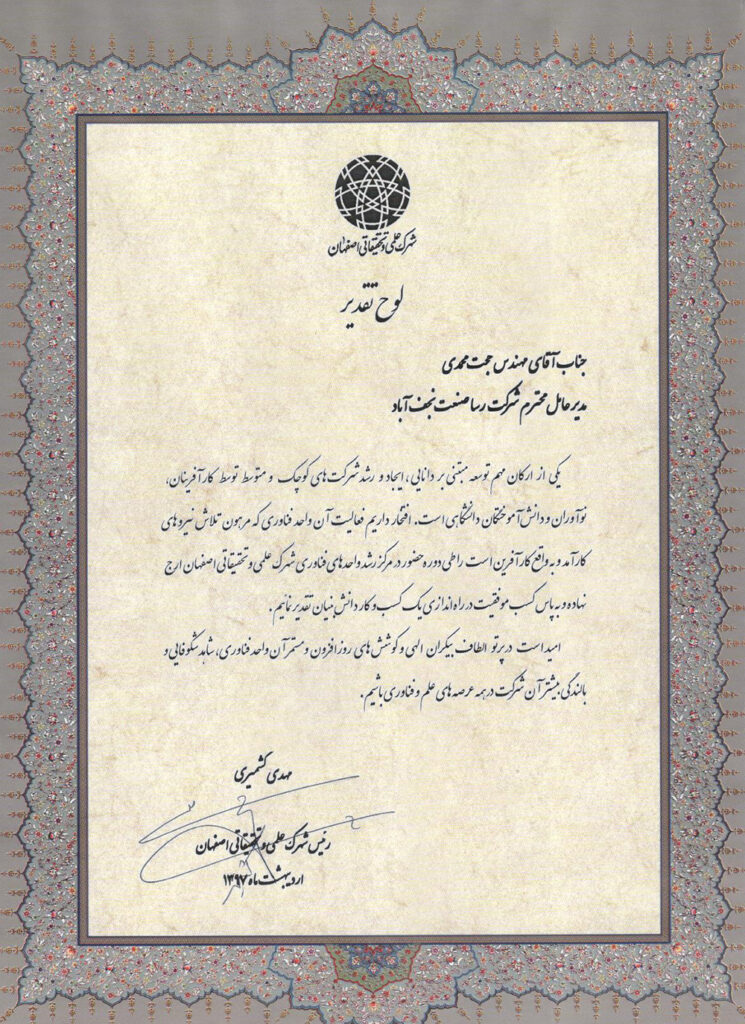 شهرک علمی و تحقیقاتی اصفهان
لوح تقدیر
جناب آقای مهندس حجت محمدی
مدیر عامل محترم شرکت رسا صنعت نجف آباد
یکی از ارکان مهم توسعه مبتنی بر دانایی، ایجاد و رشد شرکت های کوچک و متوسط توسط کارآفرینان،
نوآوران و دانش آموختگان دانشگاهی است. افتخار داریم فعالیت آن واحد فناوری که مرهون تلاش نیروهای
کارآمد و به واقع کارآفرین است را طی دوره حضور در مرکز رشد واحدهای فناوری شهرک علمی و تحقیقاتی اصفهان ارج
نهاده و به پاس کسب موفقیت در راه اندازی یک کسب و کار دانش بنیان تقدیر نمائیم.
امید است در پرتو الطاف بیکران الهی و کوشش های روز افزون و مستمر آن واحد فناوری، شاهد شکوفایی و
بالندگی بیشتر آن شرکت در همه عرصه های علم و فناوری باشیم.
مهدی کشمیری
رئیس شهرک علمی و تحقیقاتی اصفهان
اردیبهشت ماه ۱۳۹۷